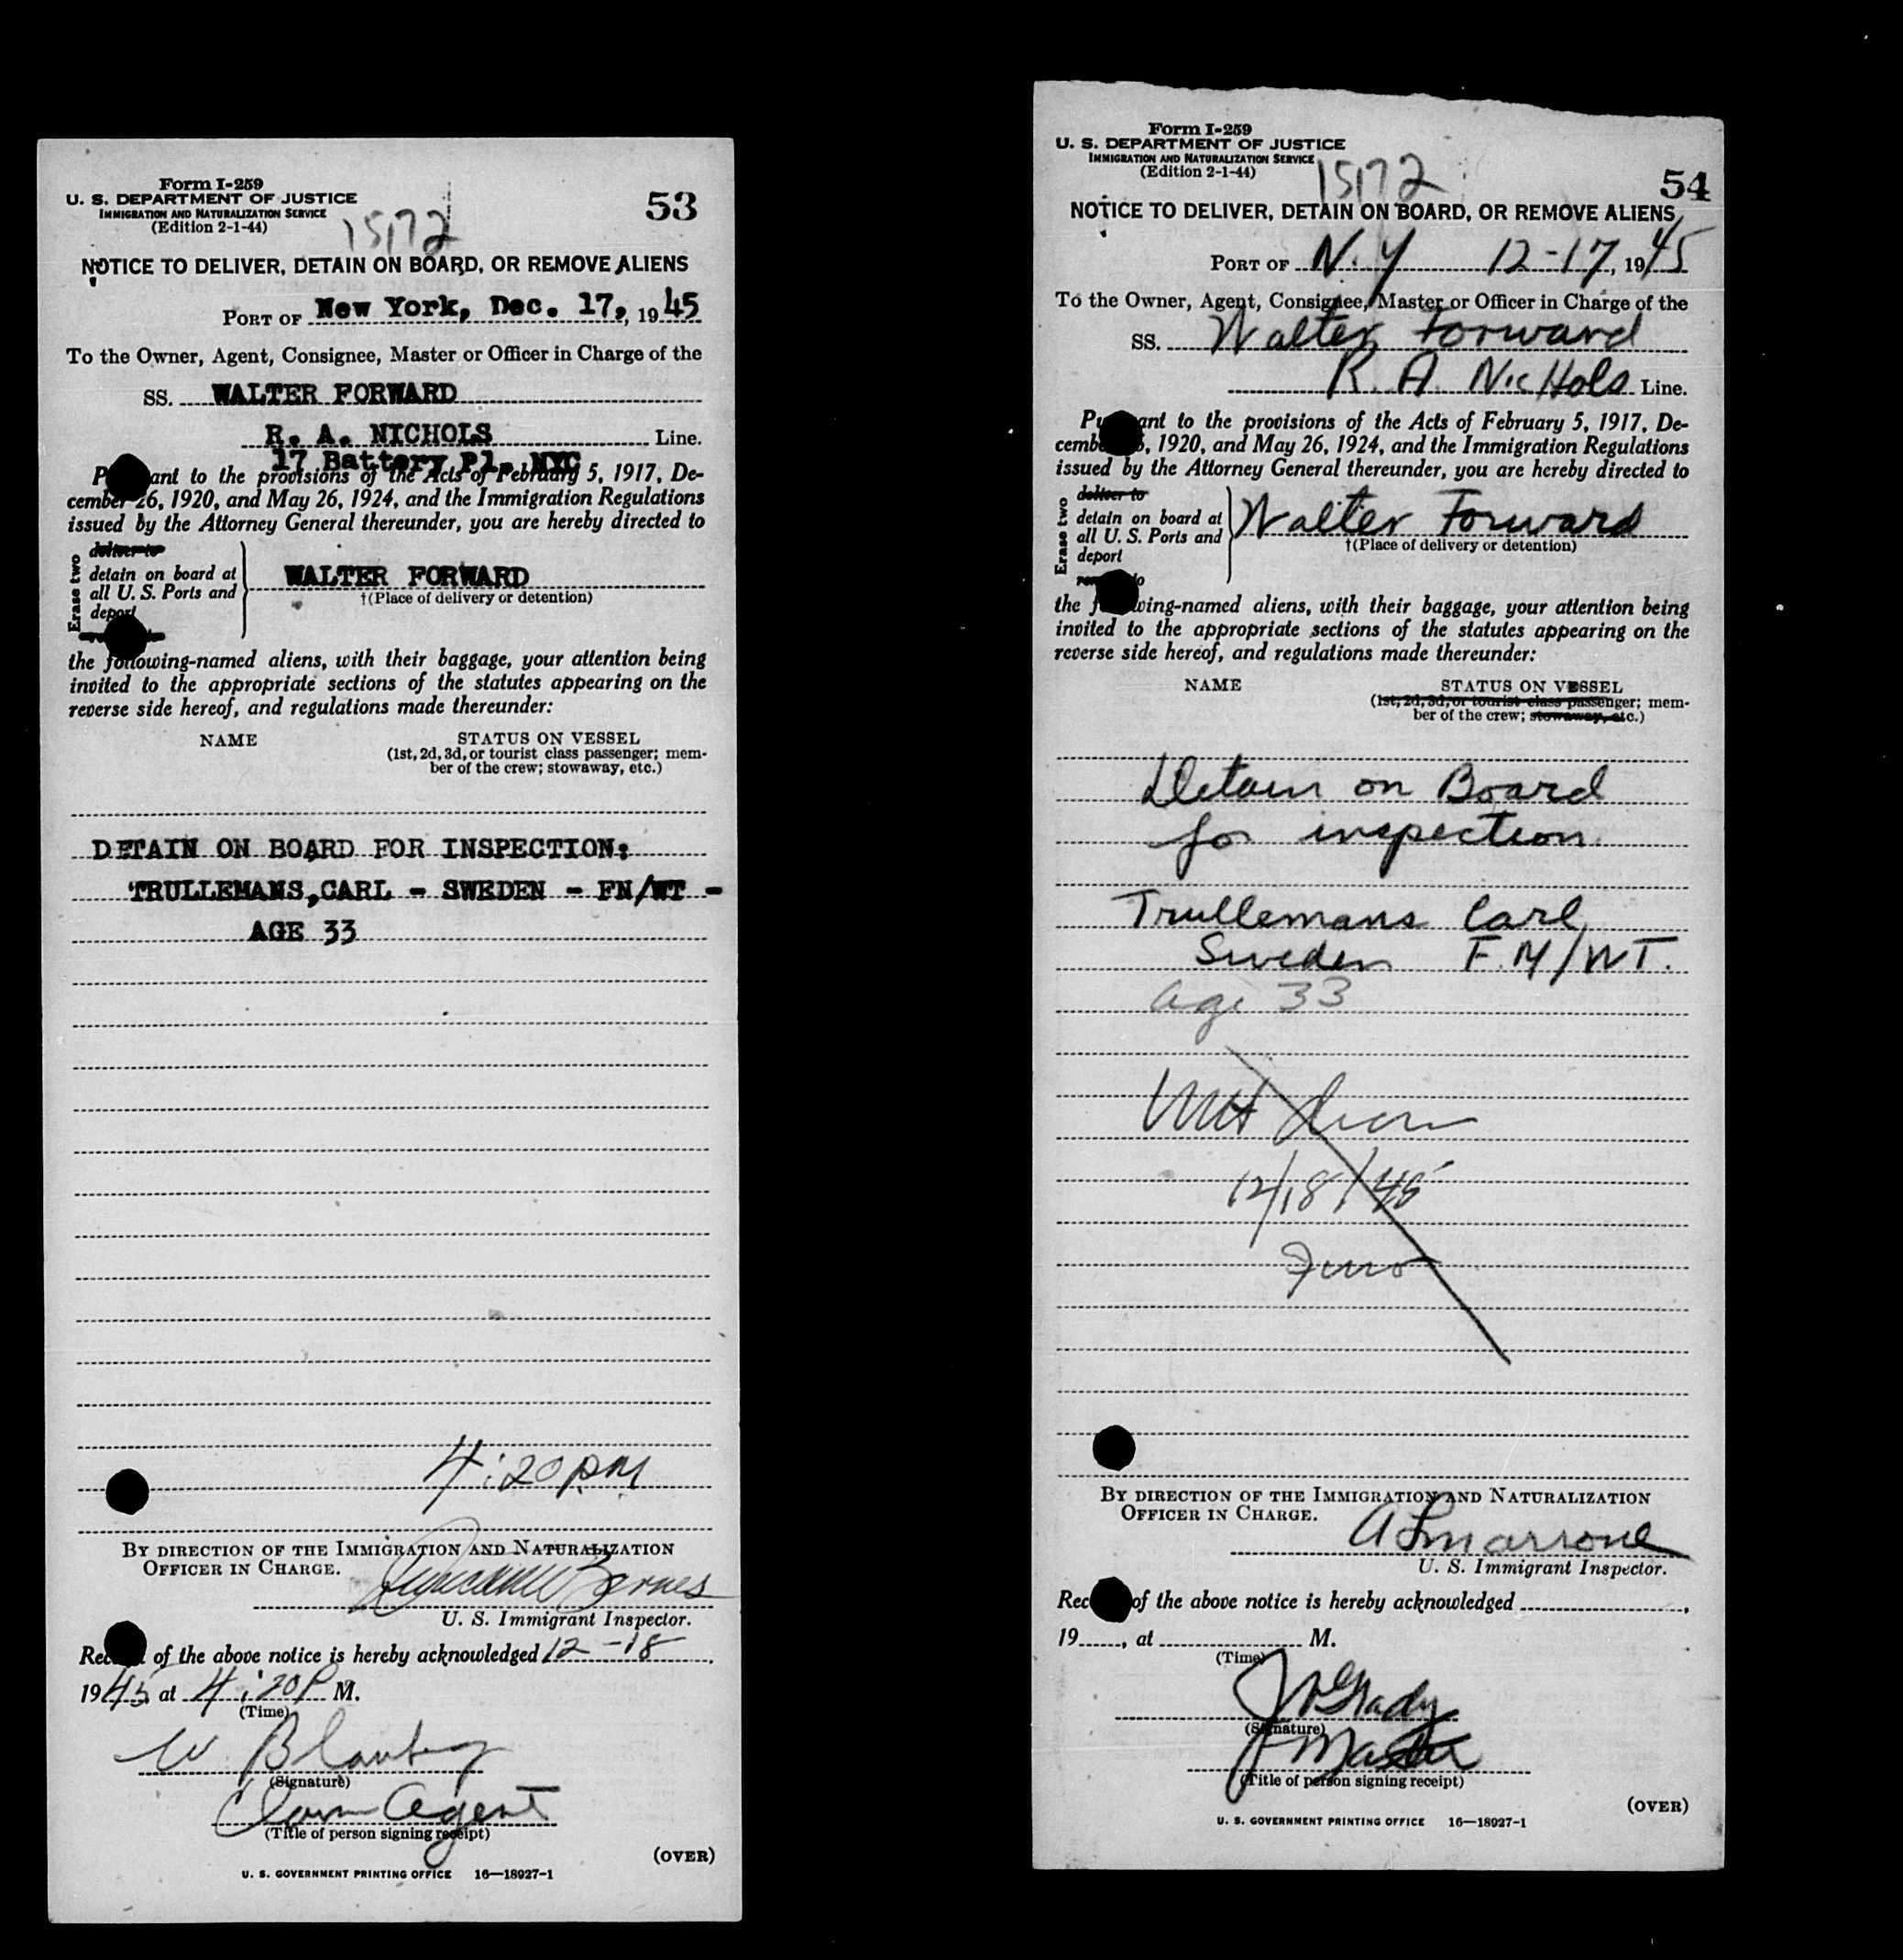 Form I-259
U. S. DEPARTMENT OF JUSTICE
IMMIGRATION AND NATURALIZATION SERVICE
(Edition 2-1-44)
15172
53
NOTICE TO DELIVER, DETAIN ON BOARD, OR REMOVE ALIENS
PORT OF New York, Dec. 17, 1945
To the Owner, Agent, Consignee, Master or Officer in Charge of the
SS. WALTER FORWARD
R. A. NICHOLS Line.
17 Battery Pl. NYC
P ant to the provisions of the Acts of February 5, 1917, De-
cember 26, 1920, and May 26, 1924, and the Immigration Regulations
issued by the Attorney General thereunder, you are hereby directed to
Erase two
deliver to
detain on board at
all U. S. Ports and
deport
WALTER FORWARD
†(Place of delivery or detention)
the following-named aliens, with their baggage, your attention being
invited to the appropriate sections of the statutes appearing on the
reverse side hereof, and regulations made thereunder:
NAME STATUS ON VESSEL
(1st, 2d, 3d, or tourist class passenger; mem-
ber of the crew; stowaway, etc.)
DETAIN ON BOARD FOR INSPECTION:
TRULLEMANS, CARL - SWEDEN - FN/WT -
AGE 33
4:20 PM
BY DIRECTION OF THE IMMIGRATION AND NATURALIZATION
OFFICER IN CHARGE.
Barnes
U. S. Immigrant Inspector.
Rec of the above notice is hereby acknowledged 12-18,
1945, at 4:20 P M.
(Time)
W.
(Signature)
Agent
(Title of person signing receipt)
(OVER)
U. S. GOVERNMENT PRINTING OFFICE 16—18927-1
Form I-259
U. S. DEPARTMENT OF JUSTICE
IMMIGRATION AND NATURALIZATION SERVICE
(Edition 2-1-44)
15172
54
NOTICE TO DELIVER, DETAIN ON BOARD, OR REMOVE ALIENS
PORT OF N.Y 12-17, 1945
To the Owner, Agent, Consignee, Master or Officer in Charge of the
SS. Walter Forward
R. A. Nichols Line.
Pu ant to the provisions of the Acts of February 5, 1917, De-
cemb 6, 1920, and May 26, 1924, and the Immigration Regulations
issued by the Attorney General thereunder, you are hereby directed to
Erase two
deliver to
detain on board at
all U. S. Ports and
deport
Walter Forward
†(Place of delivery or detention)
the f wing-named aliens, with their baggage, your attention being
invited to the appropriate sections of the statutes appearing on the
reverse side hereof, and regulations made thereunder:
NAME STATUS ON VESSEL
(1st, 2d, 3d, or tourist class passenger; mem-
ber of the crew; stowaway, etc.)
Detain on Board
for inspection
Trullemans Carl
Sweden F.M/WT.
age 33
12/18/45
BY DIRECTION OF THE IMMIGRATION AND NATURALIZATION
OFFICER IN CHARGE.
Marrone
U. S. Immigrant Inspector.
Rec of the above notice is hereby acknowledged ,
19 , at M.
(Time)
Grady
(Signature)
Master
(Title of person signing receipt)
(OVER)
U. S. GOVERNMENT PRINTING OFFICE 16—18927-1